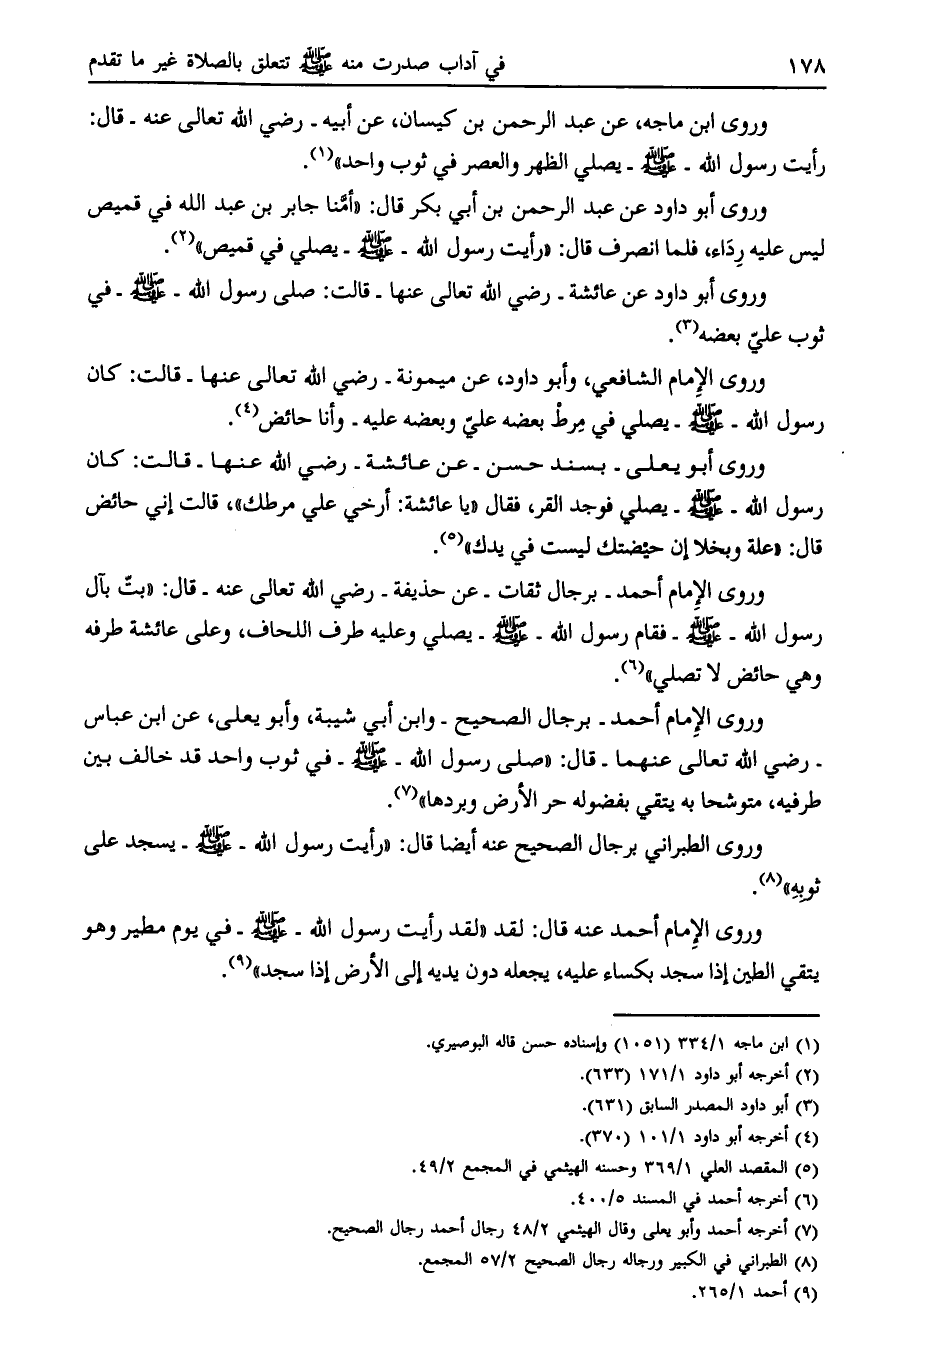 ١٧٨ في آداب صدرت منه ﷺ تتعلق بالصلاة غير ما تقدم
وروى ابن ماجه، عن عبد الرحمن بن كيسان، عن أبيه ـ رضي الله تعالى عنه ـ قال:
رأيت رسول الله ـ ﷺ ـ يصلي الظهر والعصر في ثوب واحد»(١).
وروى أبو داود عن عبد الرحمن بن أبي بكر قال: «أمَّنا جابر بن عبد الله في قميص
ليس عليه رِدَاء، فلما انصرف قال: «رأيت رسول الله ـ ﷺ ـ يصلي في قميص»(٢).
وروى أبو داود عن عائشة ـ رضي الله تعالى عنها ـ قالت: صلى رسول الله ـ ﷺ ـ في
ثوب عليّ بعضه(٣).
وروى الإِمام الشافعي، وأبو داود، عن ميمونة ـ رضي الله تعالى عنها ـ قالت: كان
رسول الله ـ ﷺ ـ يصلي في مِرطْ بعضه عليّ وبعضه عليه ـ وأنا حائض(٤).
وروى أبو يعلى ـ بسند حسن ـ عن عائشة ـ رضي الله عنها ـ قالت: كان
رسول الله ـ ﷺ ـ يصلي فوجد القر، فقال «يا عائشة: أرخي علي مرطك»، قالت إني حائض
قال: «علة وبخلا إن حيْضتك ليست في يدك»(٥).
وروى الإِمام أحمد ـ برجال ثقات ـ عن حذيفة ـ رضي الله تعالى عنه ـ قال: «بتّ بآل
رسول الله ـ ﷺ ـ فقام رسول الله ـ ﷺ ـ يصلي وعليه طرف اللحاف، وعلى عائشة طرفه
وهي حائض لا تصلي»(٦).
وروى الإِمام أحمد ـ برجال الصحيح ـ وابن أبي شيبة، وأبو يعلى، عن ابن عباس
ـ رضي الله تعالى عنهما ـ قال: «صلى رسول الله ـ ﷺ ـ في ثوب واحد قد خالف بين
طرفيه، متوشحا به يتقي بفضوله حر الأرض وبردها»(٧).
وروى الطبراني برجال الصحيح عنه أيضا قال: «رأيت رسول الله ـ ﷺ ـ يسجد على
ثوبِهِ»(٨).
وروى الإِمام أحمد عنه قال: لقد «لقد رأيت رسول الله ـ ﷺ ـ في يوم مطير وهو
يتقي الطين إذا سجد بكساء عليه، يجعله دون يديه إلى الأرض إذا سجد»(٩).
(١) ابن ماجه ٣٣٤/١ (١٠٥١) وإسناده حسن قاله البوصيري.
(٢) أخرجه أبو داود ١٧١/١ (٦٣٣).
(٣) أبو داود المصدر السابق (٦٣١).
(٤) أخرجه أبو داود ١٠١/١ (٣٧٠).
(٥) المقصد العلي ٣٦٩/١ وحسنه الهيثمي في المجمع ٤٩/٢.
(٦) أخرجه أحمد في المسند ٤٠٠/٥.
(٧) أخرجه أحمد وأبو يعلى وقال الهيثمي ٤٨/٢ رجال أحمد رجال الصحيح.
(٨) الطبراني في الكبير ورجاله رجال الصحيح ٥٧/٢ المجمع.
(٩) أحمد ٢٦٥/١.